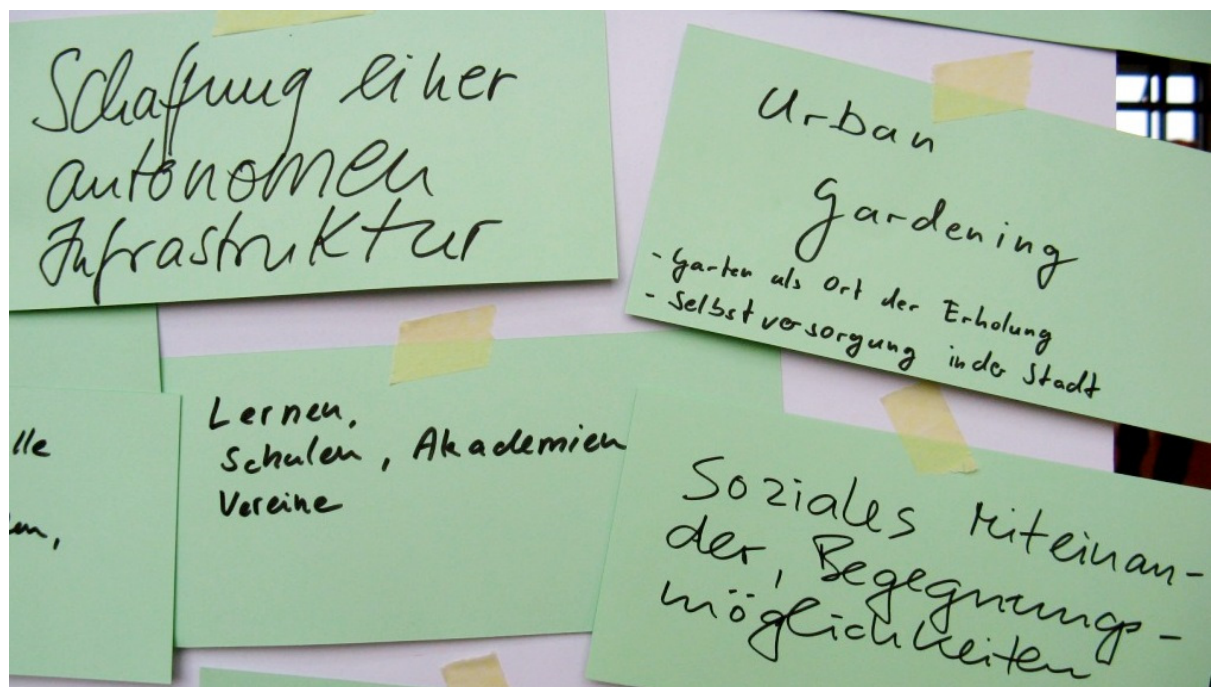 Schaffung einer
autonomen
Infrastruktur
Urban
Gardening
- Garten als Ort der Erholung
- Selbstversorgung in der Stadt
lle
en,
Lernen,
Schulen, Akademien
Vereine
Soziales Miteinan-
der, Begegnungs-
möglichkeiten